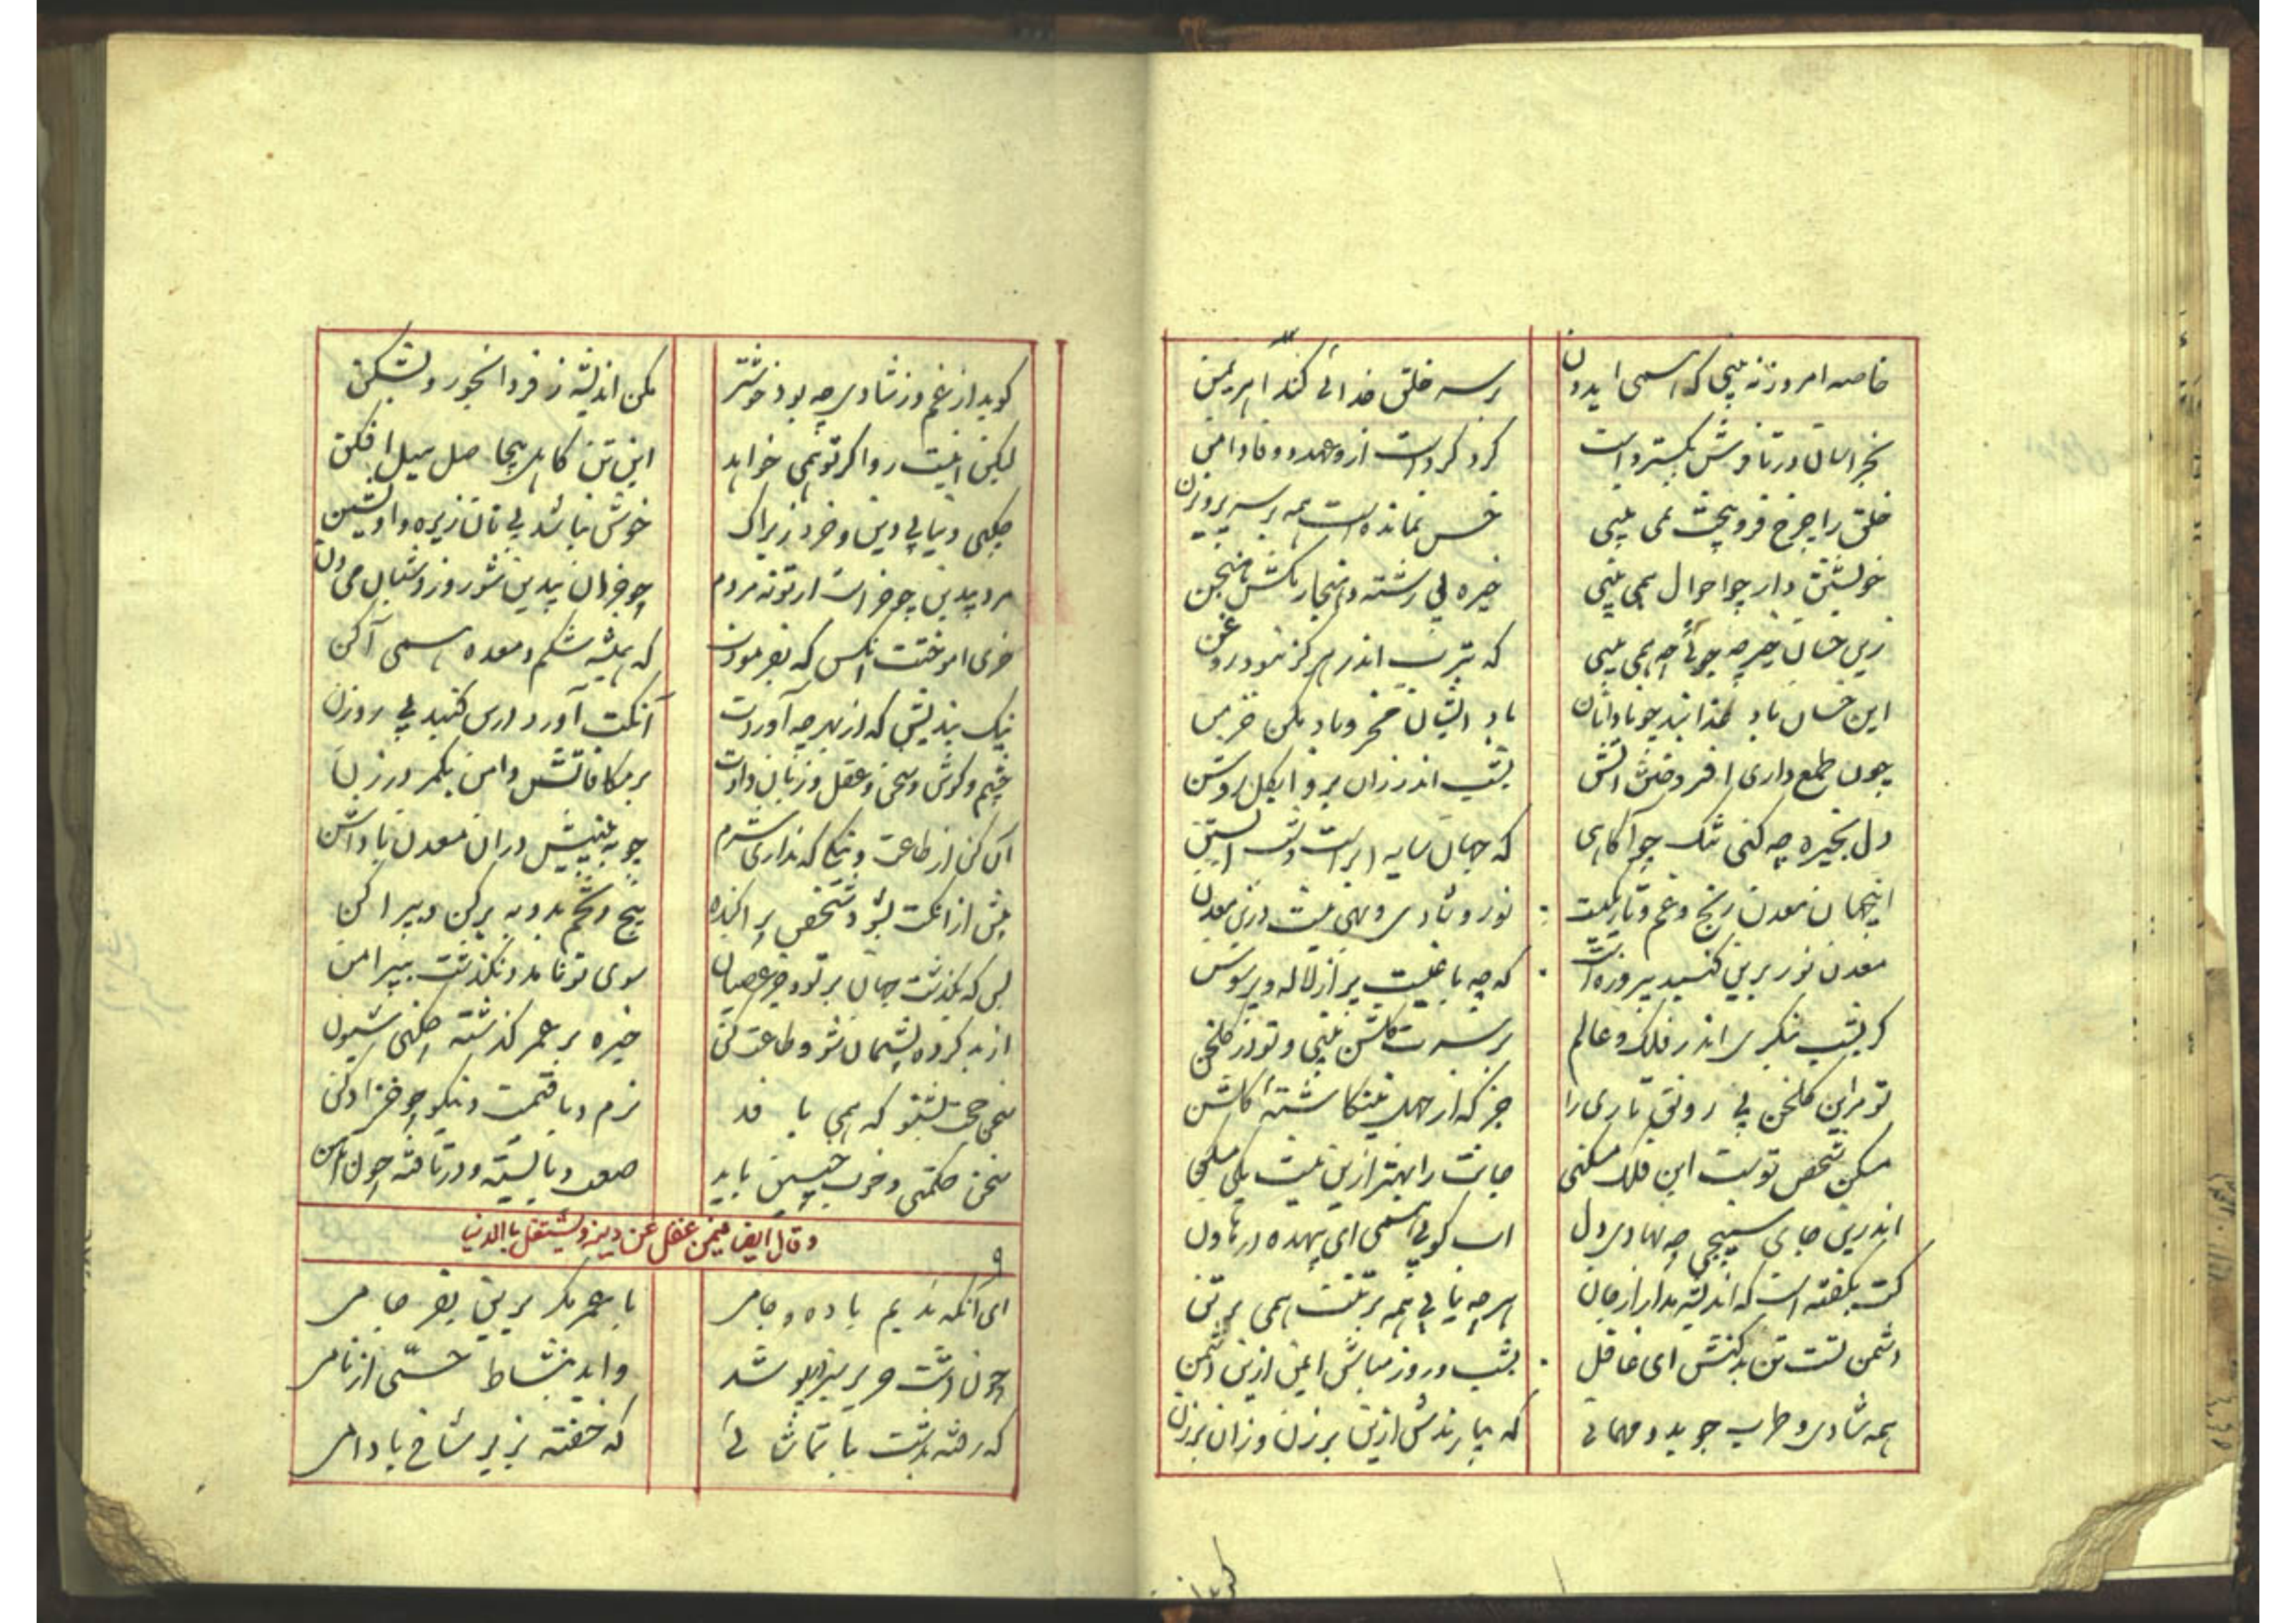 خاصه امروز نه بینی که همی ایدون
بر سر خلق خدائی کند اهریمن
بخراسان در تا فرش بگسترد است
گرد کردست ازو عهد و وفا دامن
خلق را چرخ فرو بیخت نمی بینی
خس نمانده است همه بر سر پرویزن
خویشتن دار چو احوال همی بینی
خیره بی رشته و هنجار مکش
زین خسان خیر چه جوئی چو همی بینی
که بترب اندر هرگز نبود روغن
این خسان باد چو بادانان
باد ایشان مخر و باد مکن خرمن
چون طمع داری افروختن آتش
بشب اندر زان پر و ابکل روشن
دل بخیره چه کنی تنگ چو آگاهی
که جهان سایه ابرست و شب آبستن
اینجهان معدن رنج و غم و تاریکیست
نور و شادی و بهی نیست درین معدن
معدن نور برین گنبد پیروزه است
که چو باغیست پر از لاله و پر سوسن
گر بشب بنگری اندر فلک و عالم
بر سرت گلشن بینی و تو در گلخن
تو مر این گلخن بی رونق تاری را
جز که از جهل ینگاشتهٔ گلشن
مسکن شخص تو است این فلک ای مسکین
جانت را بهتر ازین نیست یکی مسکن
اندرین جای سپنجی چه نهادی دل
آب کوبی همی ای بیهده در هاون
کت بگفته است که اندیشه مدار از جان
هر چه یابی همه بر تنت همی بر تن
دشمن تست تن بد کنش ای غافل
بشب و روز مباش ایمن ازین دشمن
همه شادی و طرب جوید و مهمانی
که بیارندش ازین برزن و زان برزن
گوید از غم وز شادی چه بود خوشتر
مکن اندیشه ز فردا بخور و بشکن
لیکن این نیست روا گر تو همی خواهد
این تن کاهل بیحاصل سیل افکن
چکنی دنیا بی دین و خرد زیراک
خوش نباشد بی نان زیره و آویشن
مرد بیدین چو خر است ار تو نه مردم
چو خران بیدین شو روز و شبان می دن
خری آموختت آنکس که بفرمودت
که همیشه شکم و معده همی آکن
نیک بندیش که از بهر چه آوردت
آنکت آورد درین گنبد بی روزن
چشم و گوش و سخن و عقل و زبان دادت
بر مکافاتش دامن بکمر در زن
آن کن از طاعت و نیکی که نداری شرم
چو به بینیش دران معدن پاداشن
پیش از آنکت بشود شخص پراکنده
بیخ و تخم بد و به برکن و بپراکن
بس که بگذشت جهان بر تو و جز عصیان
سوی تو نامد و نگذشت به پیرامن
از بد کرده پشیمان شو و طاعت کن
خیره بر عمر گذشته چکنی شیون
سخن حجت بشنو که همی با فد
نرم و با قیمت و نیکو چو خز ادکن
سخن حکمتی و خوب چنین باید
صعب و بایسته و در تافته چون آهن
وقال ایضا فیمن غفل عن دینه ویشتغل باالدنیا
ای آنکه ندیم باده و جامی
با عمر مگر برین بفرجامی
چون دشت حریر سبز شد
و اید بنشاط حسّی از نامی
که رفته بدشت با تماشائی
که خفته بزیر شاخ بادامی